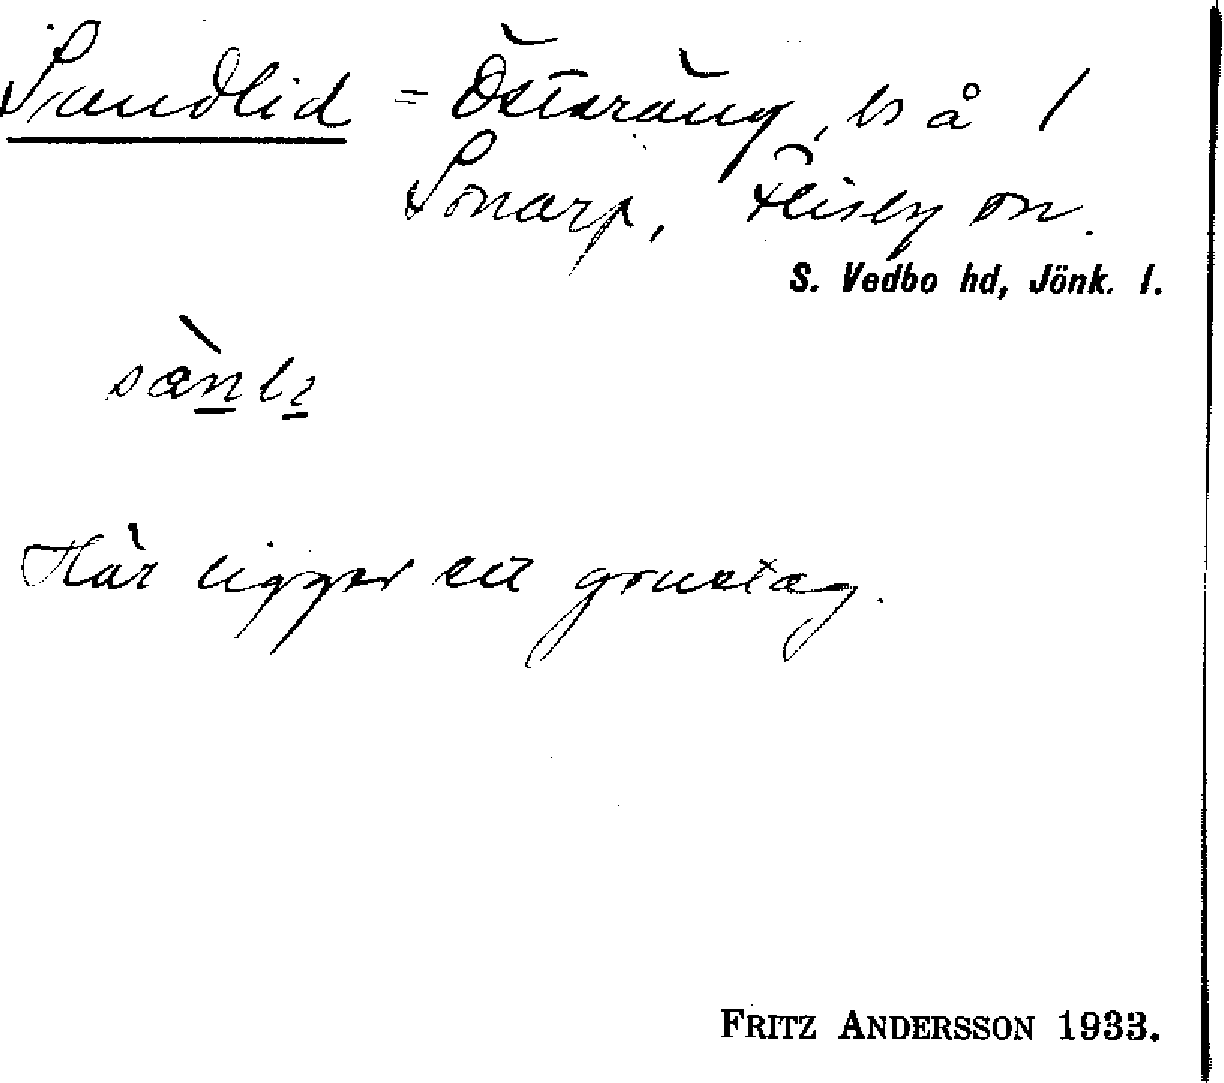 Sandlid = Österäng, bs å 1
Sonarp, Flisby sn.
S. Vedbo hd, Jönk. l.
Här ligger ett grustag.
FRITZ ANDERSSON 1933.